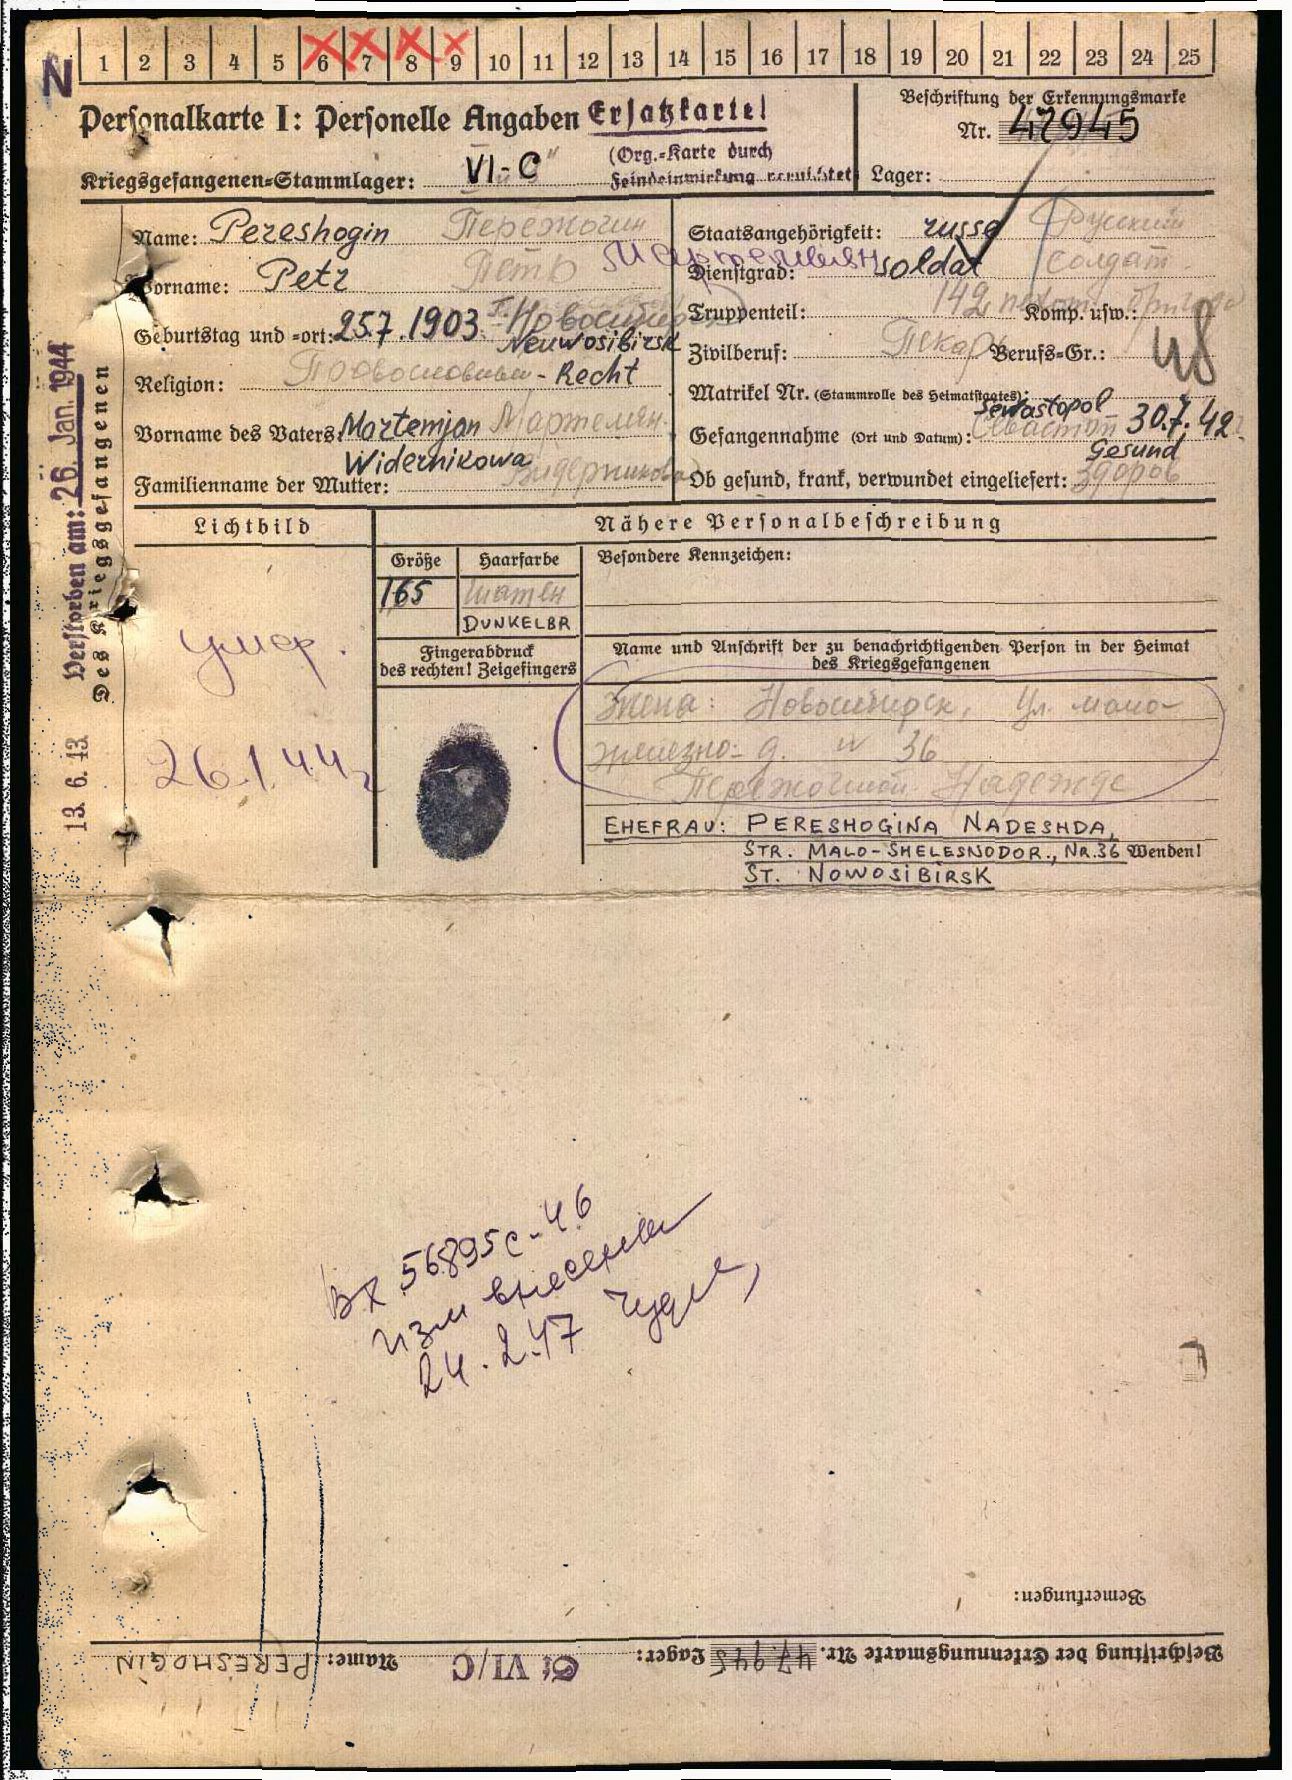 N
1 2 3 4 5 6 7 8 9 10 11 12 13 14 15 16 17 18 19 20 21 22 23 24 25
Personalkarte I: Personelle Angaben Ersatzkarte!
Beschriftung der Erkennungsmarke
Nr. 47945
(Org.-Karte durch
Feindeinwirkung vernichtet
Kriegsgefangenen-Stammlager: VI-C
Lager:
Name: Pereshogin Пережогин
Vorname: Petr Петр
Geburtstag und -ort: 25.7.1903. Новосибирск
Neuwosibirsk
Religion: - Recht
Vorname des Vaters: Mortemjan Мартемян
Widernikowa
Familienname der Mutter: Видерникова
Staatsangehörigkeit: russe Русский
Dienstgrad: soldat солдат
Truppenteil: 142 Komp. usw.: бригада
Zivilberuf: Пекар Berufs-Gr.: 48
Matrikel Nr. (Stammrolle des Heimatstaates):
Sewastopol
Gefangennahme (Ort und Datum): 30.7.42
Gesund
Ob gesund, krank, verwundet eingeliefert: Здоров
Verstorben am: 26. Jan. 1944
Des Kriegsgefangenen
13. 6. 43
Lichtbild
умер.
26.1.44г
Nähere Personalbeschreibung
Größe
165
Haarfarbe
шатен
DUNKELBR
Besondere Kennzeichen:
Fingerabdruck
des rechten! Zeigefingers
Name und Anschrift der zu benachrichtigenden Person in der Heimat
des Kriegsgefangenen
Жена: Новосибирск, ул. мало-
железно-д. N 36
Пережогиной Надежде
EHEFRAU: PERESHOGINA NADESHDA,
STR. MALO-SHELESNODOR., NR.36 Wenden!
ST. NOWOSIBIRSK
Вх 56895с-46
изм внесены
24.2.47
Bemerkungen:
Beschriftung der Erkennungsmarke Nr. 47945 Lager: VI/C Name: PERESHOGIN